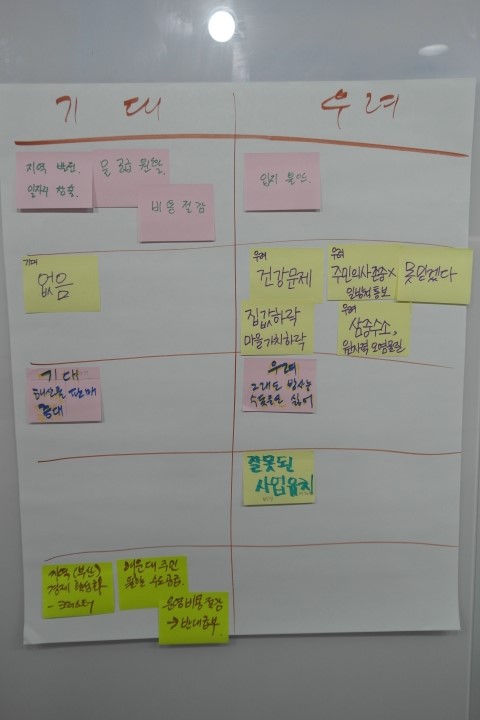 기 대
우 려
지역 발전.
일자리 창출.
물 공급 원활.
비용 절감
입지 불안.
기대
없음
우려
건강문제
우려
주민의사존중×
일방적통보
못믿겠다
집값하락
마을가치하락
우려
삼중수소,
원자력 오염물질
기대
해산물 판매
증대
우려
그래도 방사능
수돗물은 싫어
잘못된
사업유치
지역(부산)
경제 활성화
해운대 주민
원활한 수도공급.
운영비용절감